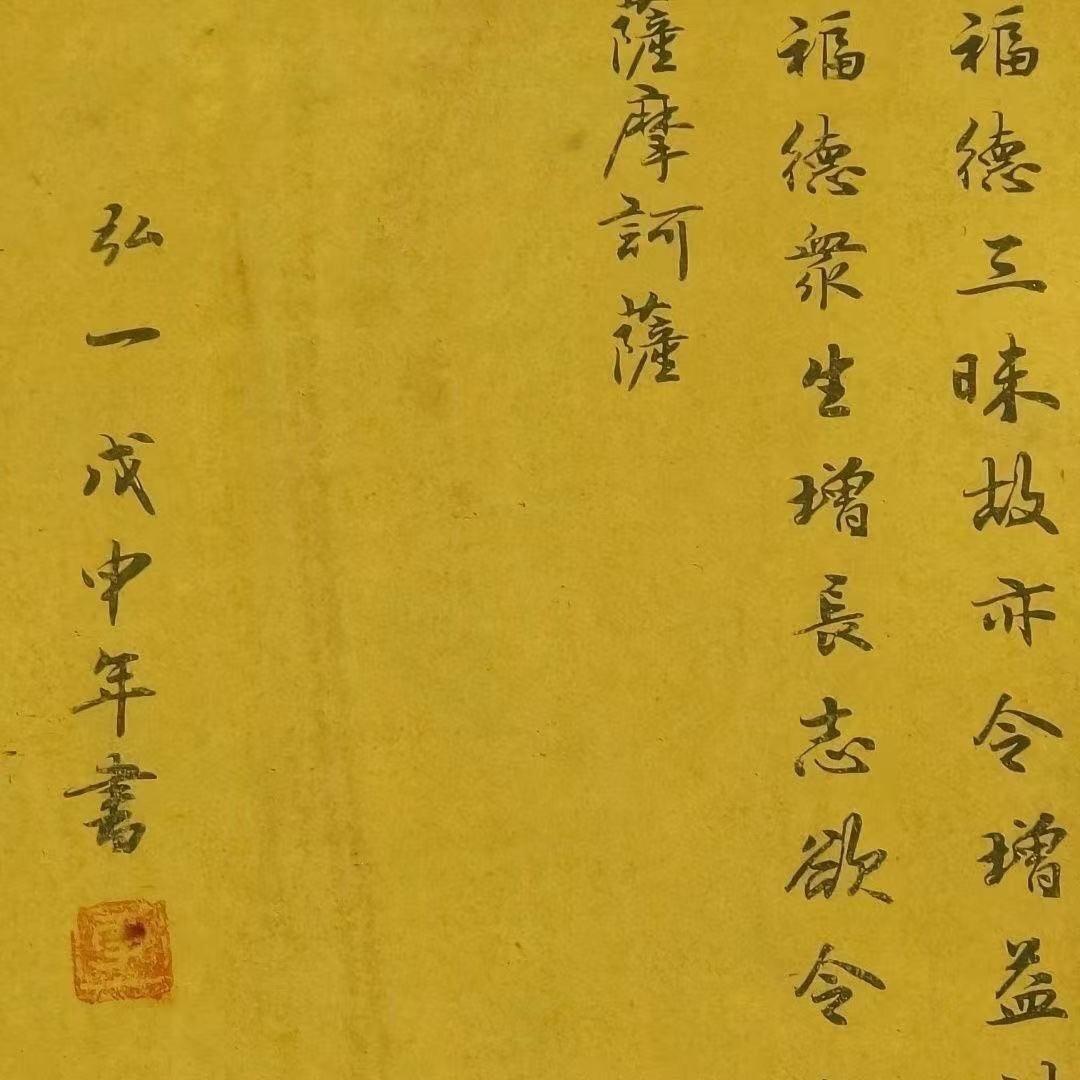 福德三昧故亦令增益
福德衆生增長志欲令
薩摩訶薩
弘一戊申年書